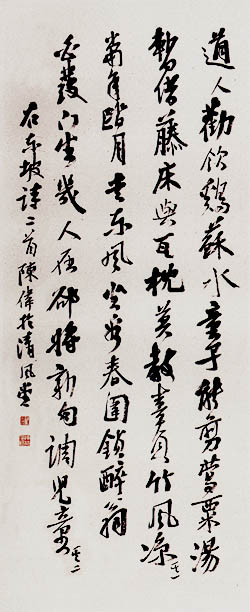 道人勸飲鷄蘇水童子能煎罌粟湯
暫借藤床與瓦枕莫教辜負竹風凉其一
當年踏月走東風坐看春闈鎖醉翁
白髮門生幾人在卻將新句調兒童其二
右東坡詩二首陳偉於清風堂